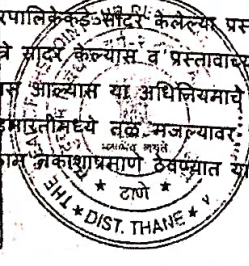 रपालिकेकडे सादर केलेल्या प्रस
त्रे सादर केल्यास व प्रस्तावाच्य
स आल्यास या अधिनियमाचे
इमारतीमध्ये तळ मजल्यावर
काम नकाशाप्रमाणे ठेवण्यात या
ठाणे
THE
DIST. THANE